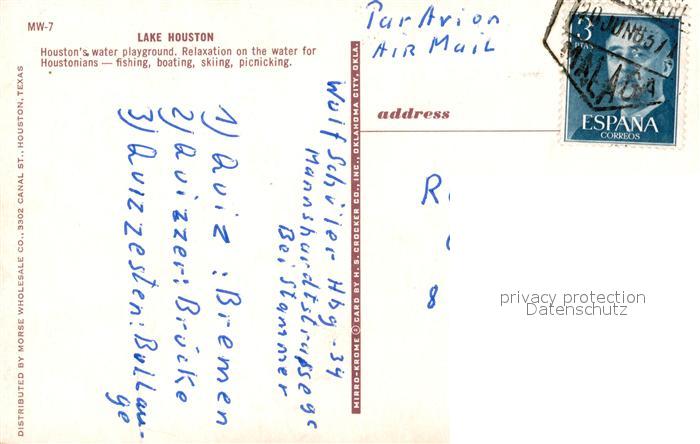 MW-7
LAKE HOUSTON
Houston's water playground. Relaxation on the water for
Houstonians — fishing, boating, skiing, picnicking.
DISTRIBUTED BY MORSE WHOLESALE CO., 3302 CANAL ST., HOUSTON, TEXAS
1) Quiz : Bremen
2) Quizzer: Brücke
3) Quizzesten: Bullau-
ge
Wulf Schüler Hbg-34
bei Stammer
MIRRO-KROME © CARD BY H. S. CROCKER CO., INC., OKLAHOMA CITY, OKLA.
Par Avion
AIR Mail
address
3
PTAS
MALAGA
ESPAÑA
CORREOS
R
8
privacy protection
Datenschutz